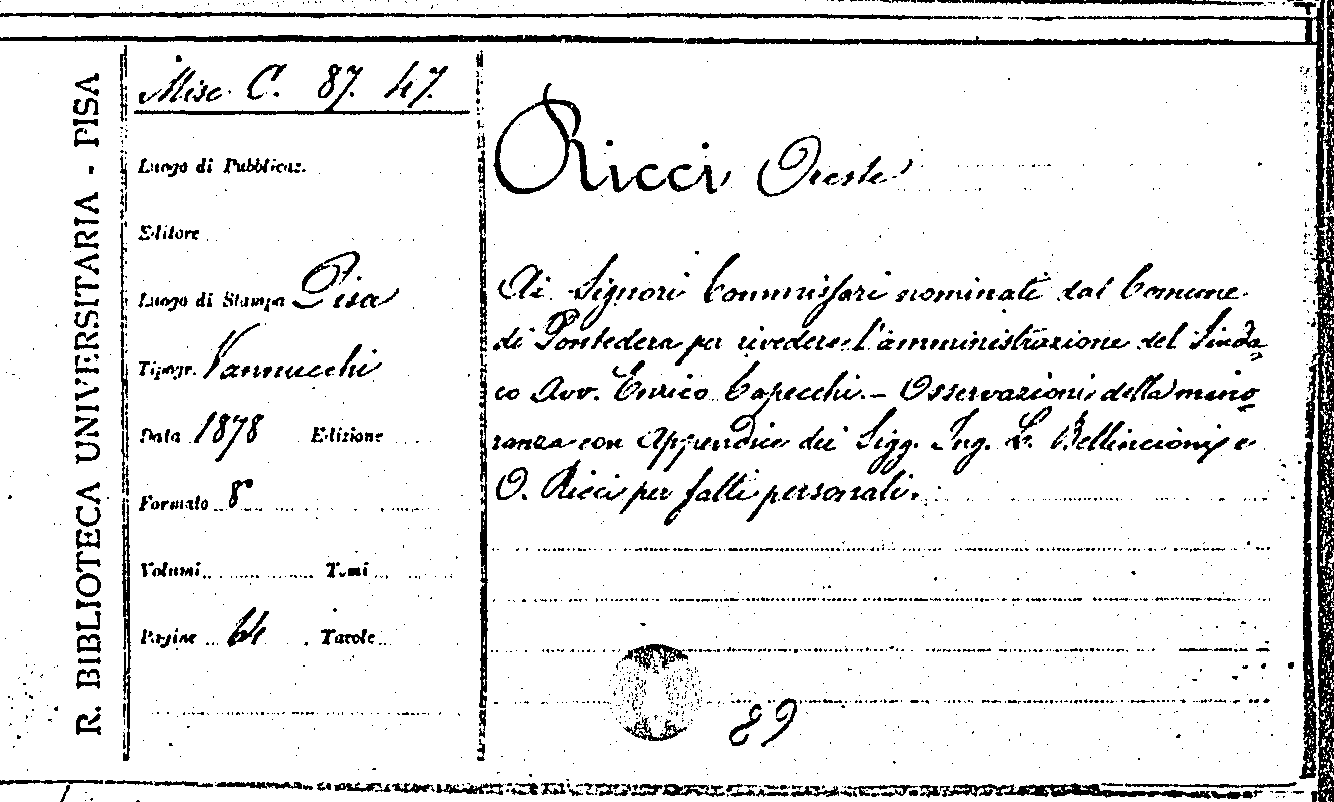 R. BIBLIOTECA UNIVERSITARIA - PISA
Misc. C. 87. 47.
Luogo di Pubblicaz.
Editore
Luogo di Stampa Pisa
Tipogr. Vannucchi
Data 1878 Edizione
Formato 8°
Volumi Tomi
Pagine 64 Tavole
Ricci, Oreste
Ai Signori Commissari nominati dal Comune
di Pontedera per rivedere l'amministrazione del Sinda-
co Avv. Enrico Capecchi. - Osservazioni della mino-
ranza con Appendice dei Sigg. Ing. L. Bellincioni e
O. Ricci per fatti personali.
89